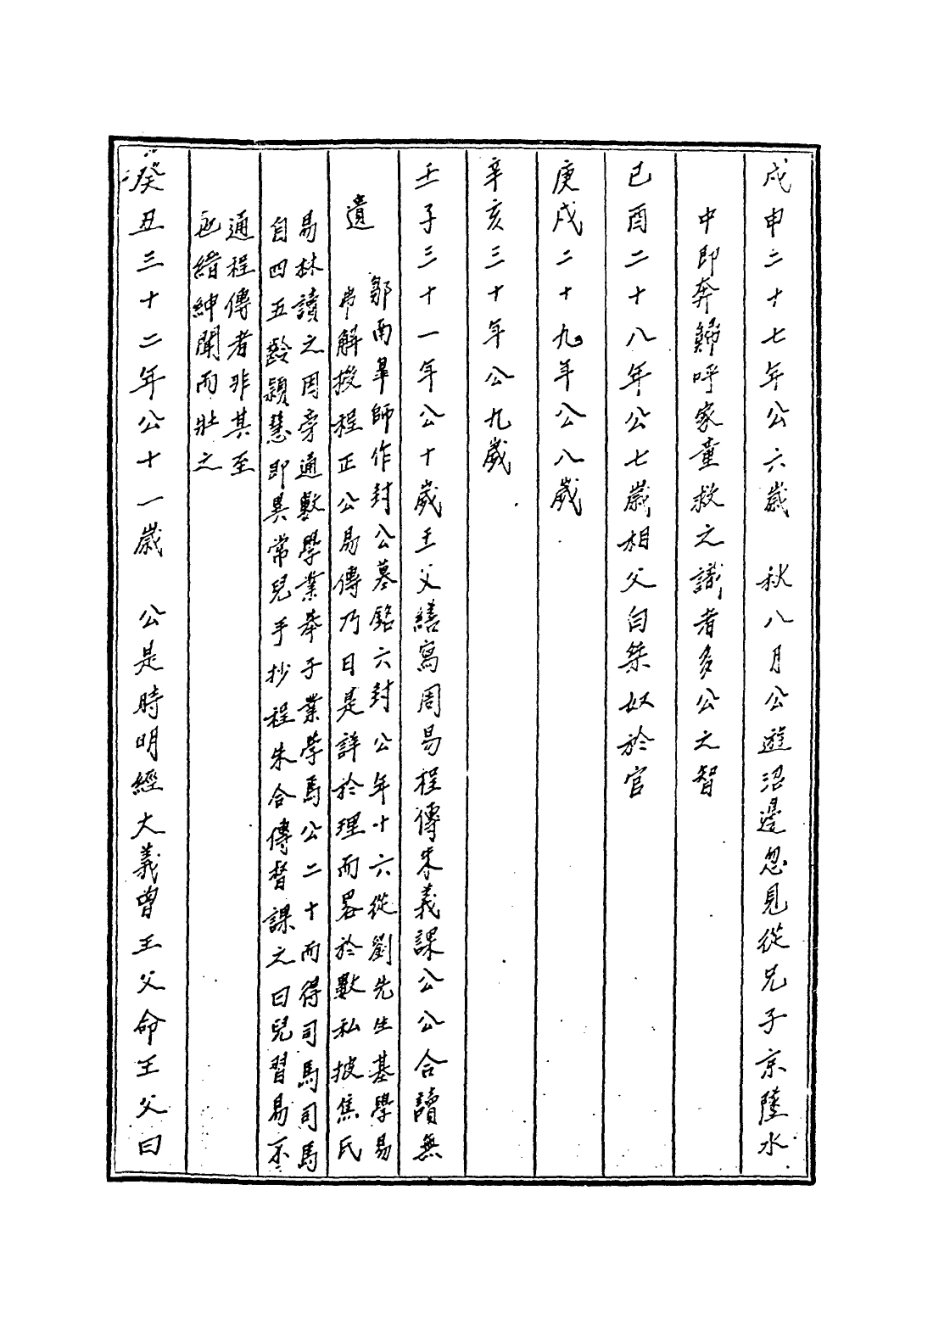 戊申二十七年公六歲　秋八月公遊沼邊忽見從兄子京墮水
中即奔歸呼家童救之識者多公之智
已酉二十八年公七歲相父自桀奴於官
庚戌二十九年公八歲
辛亥三十年公九歲
壬子三十一年公十歲王父繕寫周易程傳朱義課公公合讀無
遺
鄒南臯師作封公墓銘六封公年十六從劉先生基學易
帋解授程正公易傳乃日是詳於理而畧於數私披焦氏
易林讀之因旁通數學業舉子業學馬公二十而得司馬司馬
自四五齡穎慧即異常兒手抄程朱合傳督課之曰兒習易不
通程傳者非其至
也縉紳聞而壯之
癸丑三十二年公十一歲　公是時明經大義曾王父命王父曰